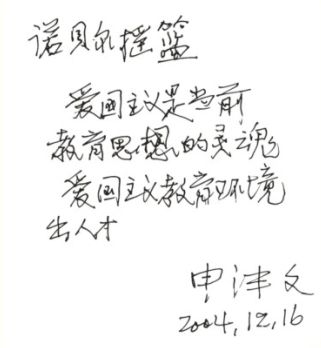 诺贝尔摇篮
爱国主义是当前
教育思想的灵魂
爱国主义教育环境
出人才
申泮文
2004,12,16